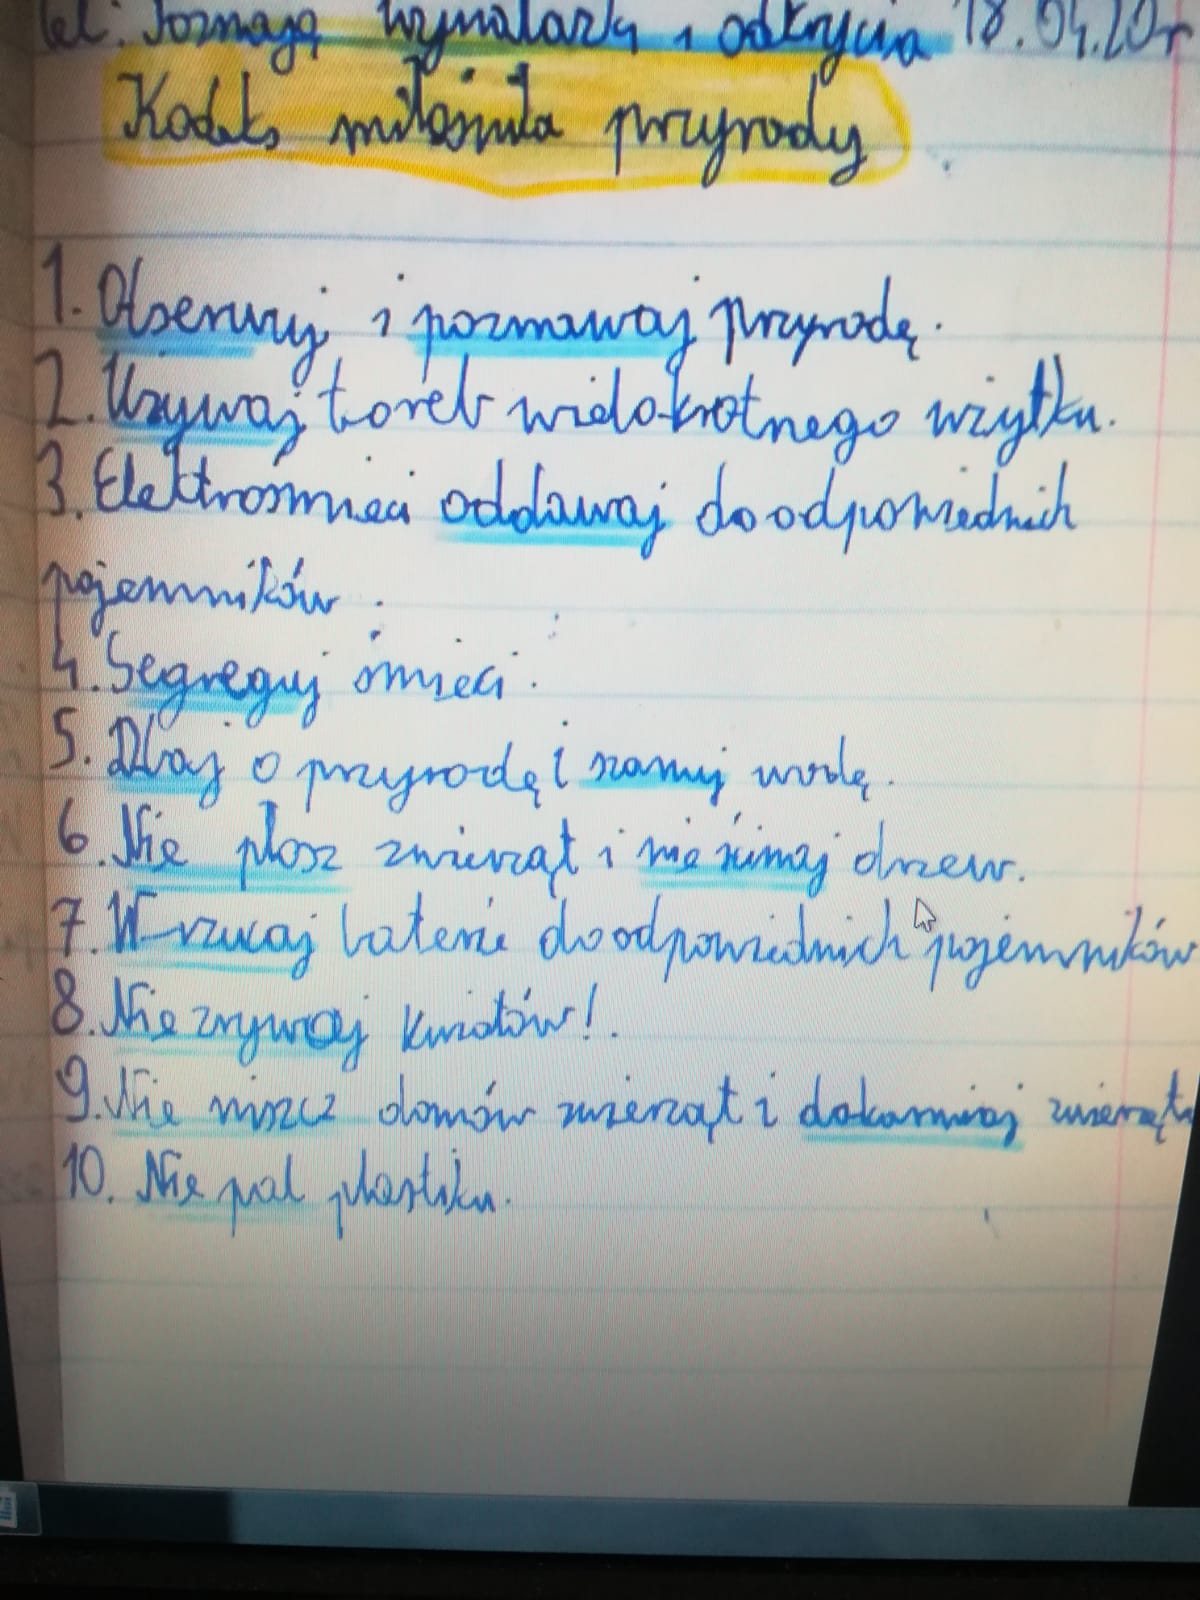 Poznaję wynalazki i odkrycia 18.04.20r
Kodeks miłośnika przyrody
1. Obserwuj i poznawaj przyrodę.
2. Używaj toreb wielokrotnego użytku.
3. Elektrośmieci oddawaj do odpowiednich
pojemników.
4. Segreguj śmieci.
5. Dbaj o przyrodę i szanuj wodę.
6. Nie płosz zwierząt i nie ścinaj drzew.
7. Wrzucaj baterie do odpowiednich pojemników
8. Nie zrywaj kwiatów!
9. Nie niszcz domów zwierząt i dokarmiaj zwierzęta
10. Nie pal plastiku.